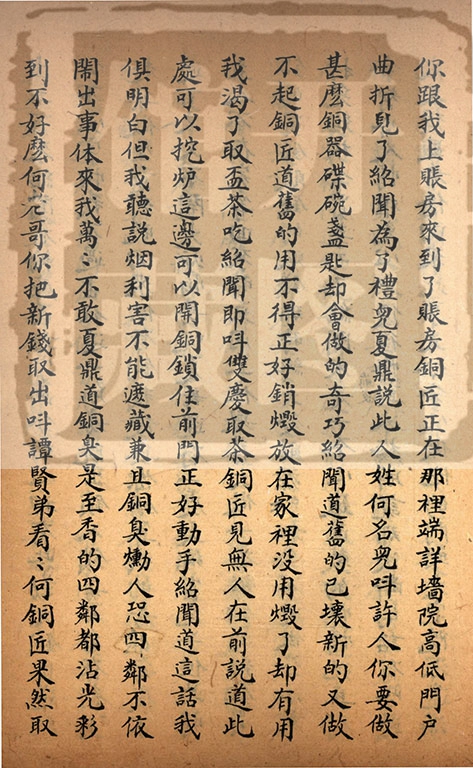 你跟我上賬房來到了賬房銅匠正在那裡端詳墻院高低門户
曲折見了紹聞為了禮兒夏鼎說此人姓何名兒呌許人你要做
甚麽銅器碟碗盞匙却會做的奇巧紹聞道舊的已壞新的又做
不起銅匠道舊的用不得正好銷燬放在家裡沒用燬了却有用
我渴了取盃茶吃紹聞即呌雙慶取茶銅匠見無人在前説道此
處可以挖炉這邊可以開銅鎖住前門正好動手紹聞道這話我
俱明白但我聽説烟利害不能遮藏兼且銅臭燻人恐四鄰不依
閙出事体來我萬〻不敢夏鼎道銅臭是至香的四鄰都沾光彩
到不好麽何老哥你把新錢取出呌譚賢弟看〻何銅匠果然取